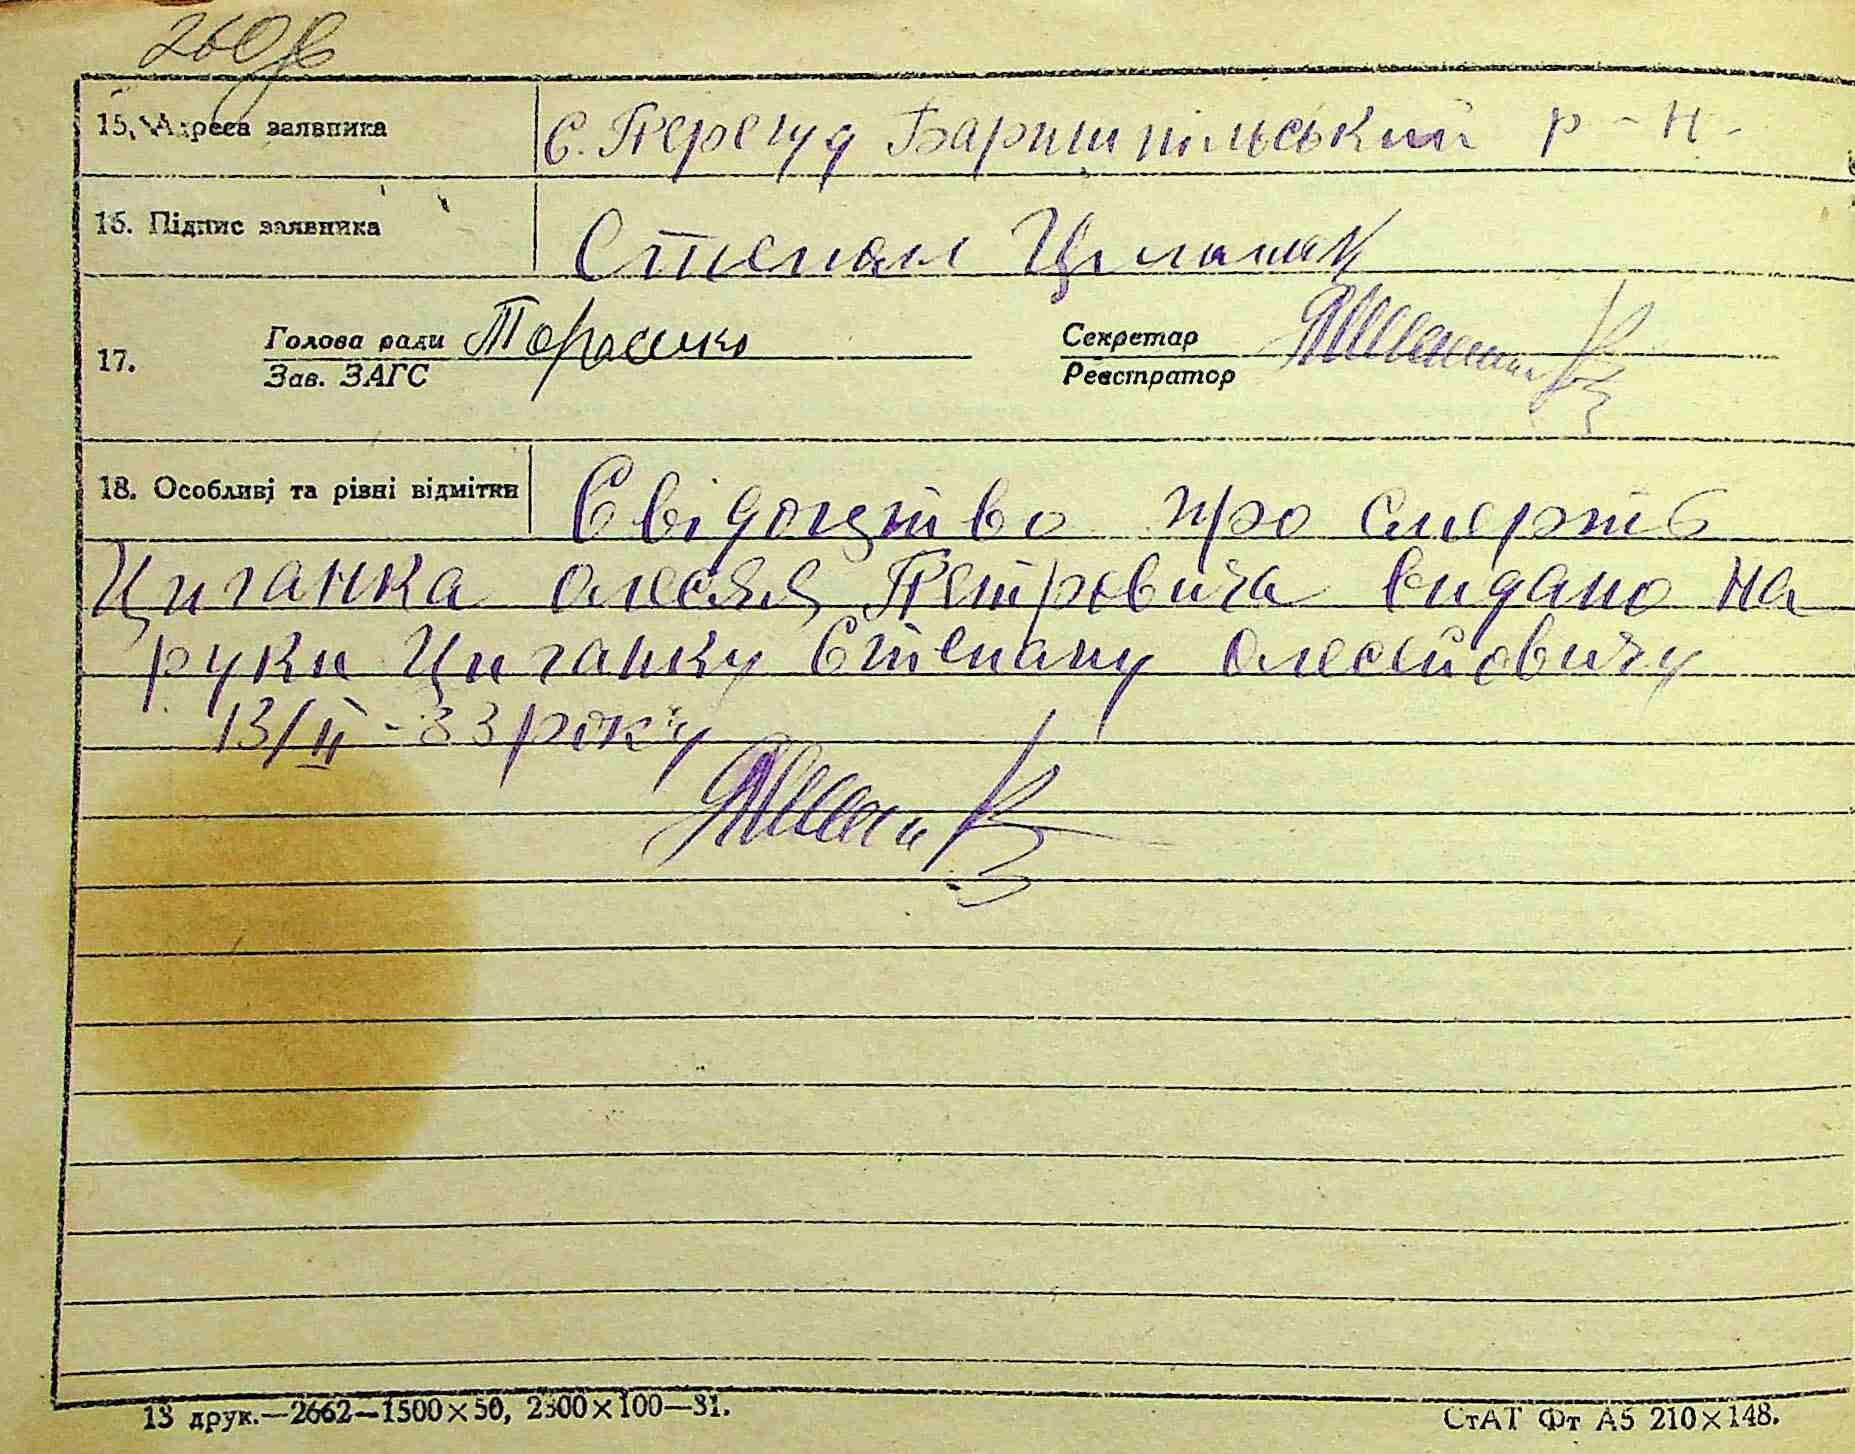 260
15. Адреса заявника с. Перегуд Баришпільський р-н.
16. Підпис заявника Степан
17. Голова ради Секретар
Зав. ЗАГС Реєстратор
18. Особливі та різні відмітки Свідоцтво про смерть
Циганка Олесія Петровича видано на
руки Циганку Степану Олесійовичу
13/ІІ-83 року
13 друк.—2662—1500×50, 2300×100—31.
СтАТ Фт А5 210×148.